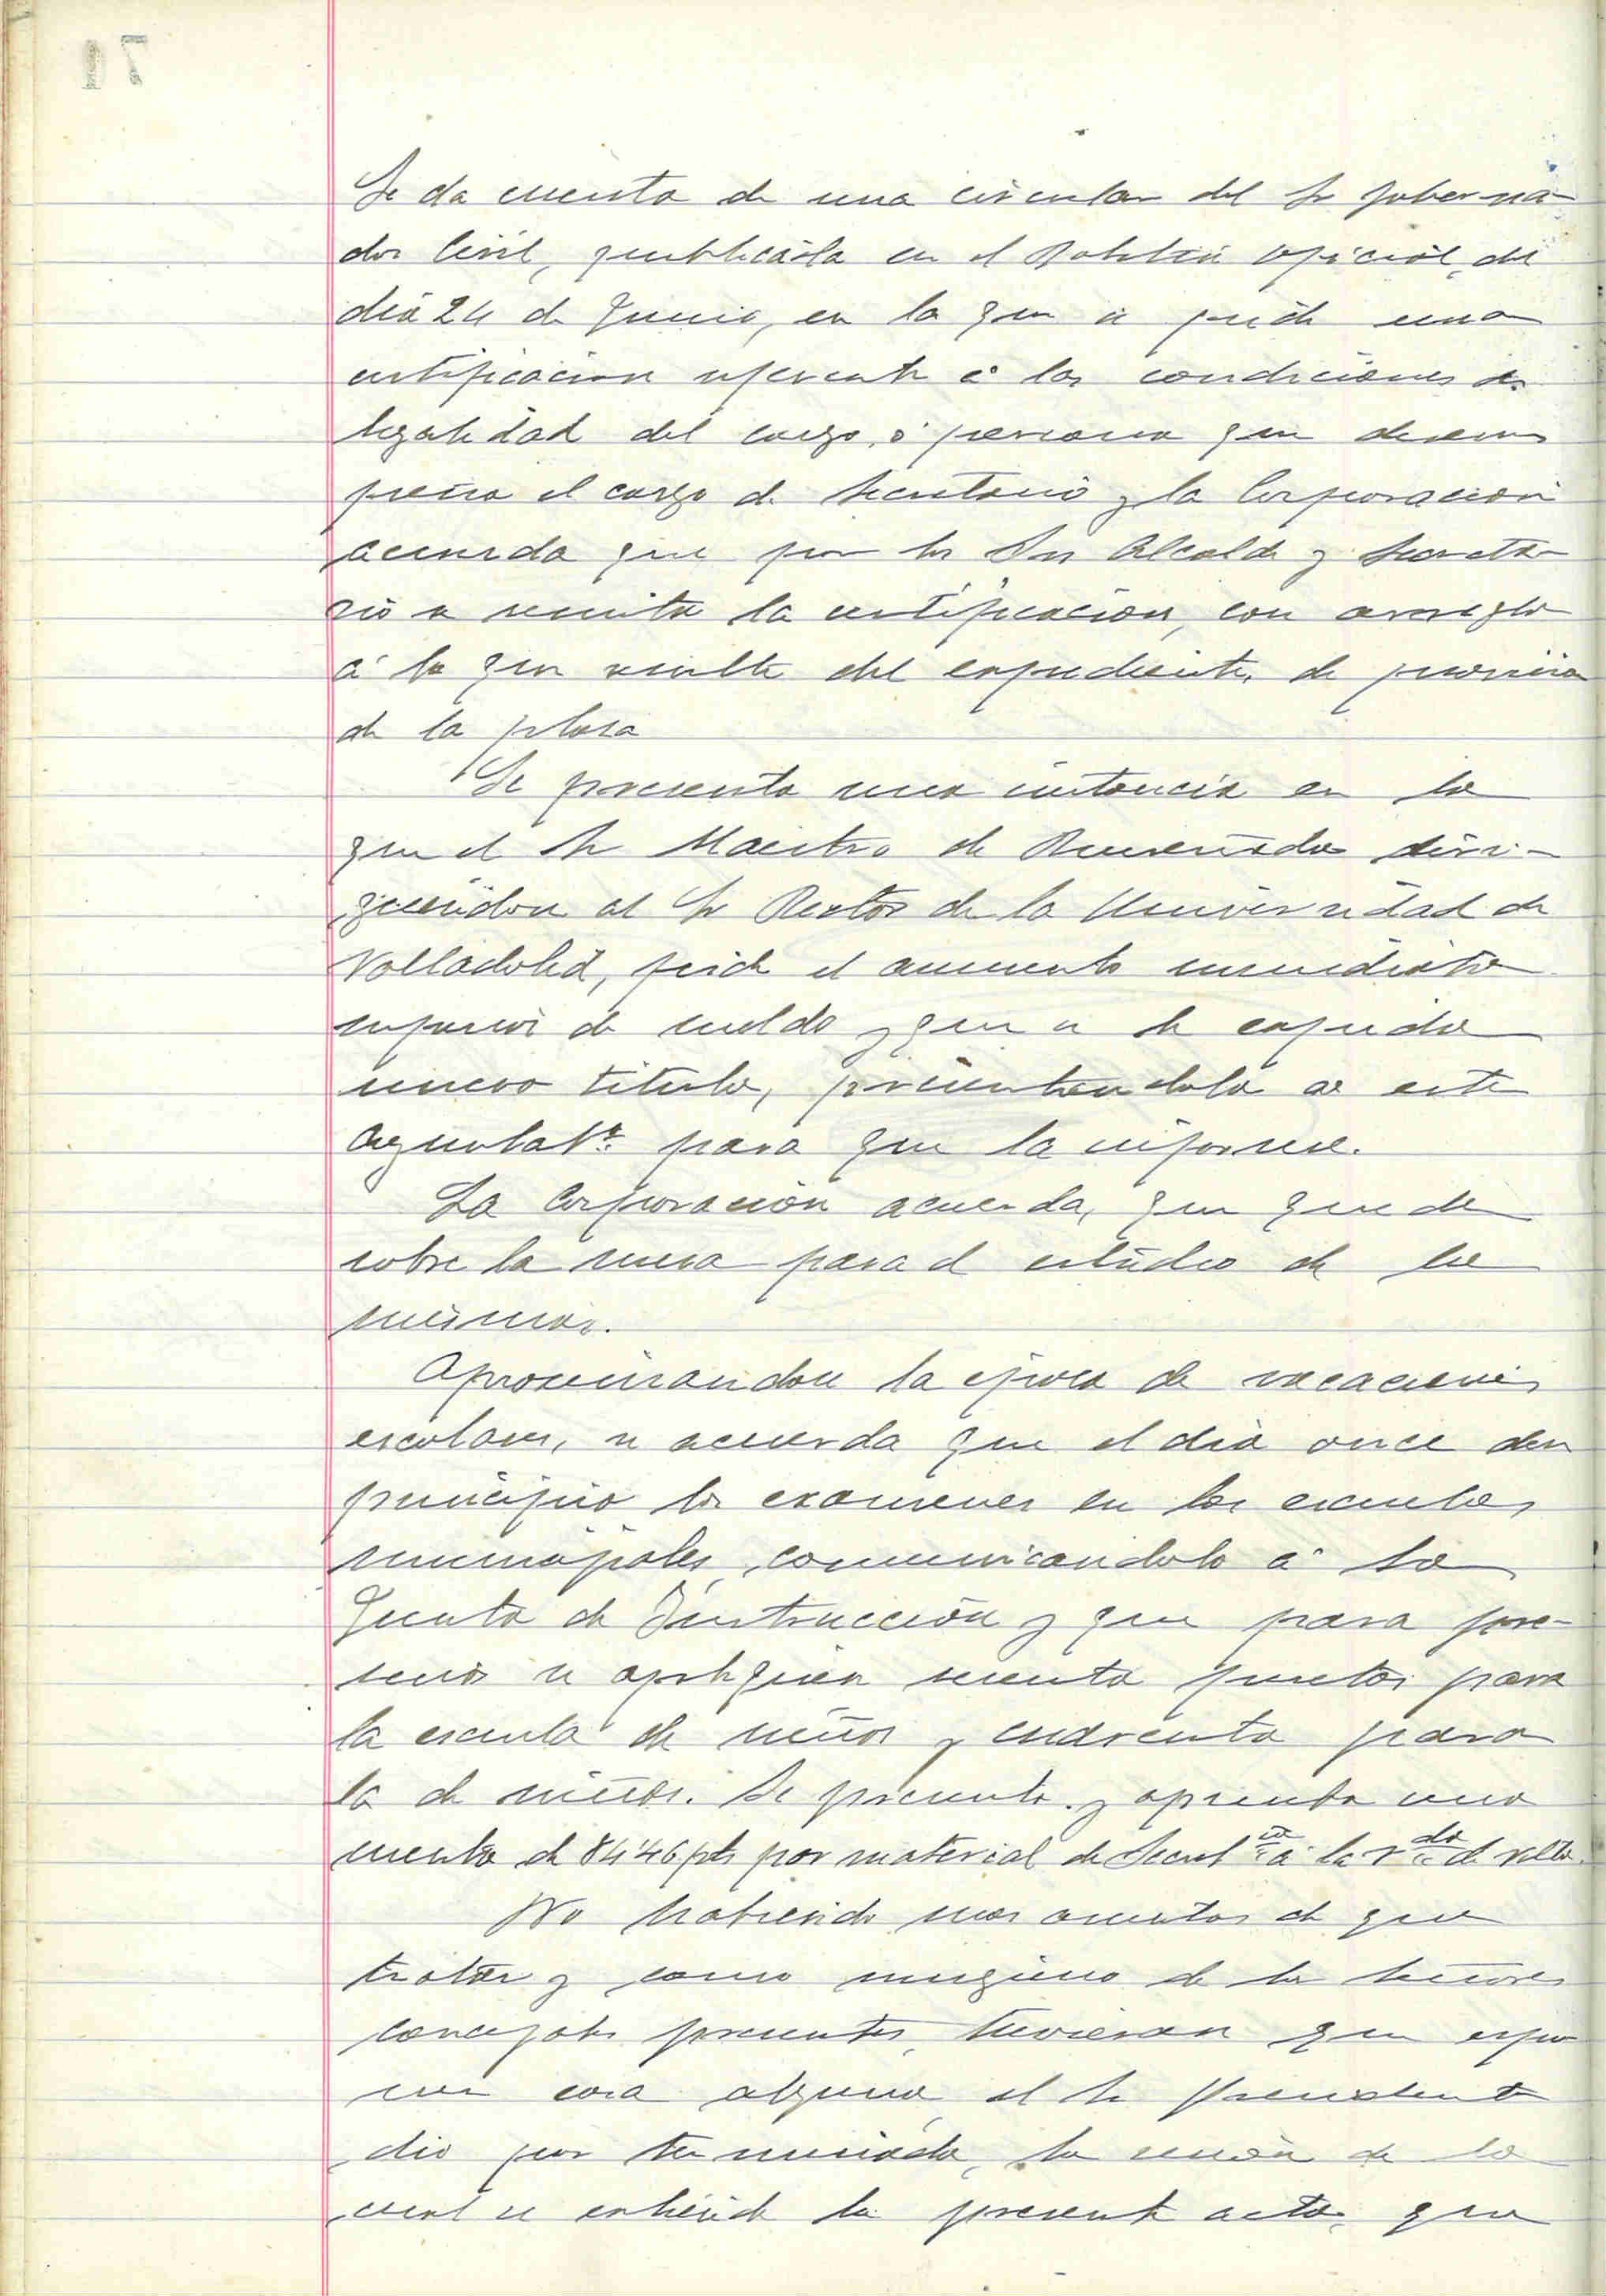 Se da cuenta de una circular del Sr Goberna-
dor Civil, publicada en el Boletin oficial del
dia 24 de Junio, en la que se pide una
certificacion referente á las condiciones de
legalidad del cargo, ó persona que desem
peña el cargo de Secretario y la Corporacion
acuerda que por los Sres Alcalde y Secreta-
rio se remita la certificacion, con arreglo
á lo que resulte del expediente, de provision
de la plaza
Se presenta una instancia en la
que el Sr Maestro de diri-
giendose al Sr Rector de la Universidad de
Valladolid, pide el aumento inmediato
superior de sueldo y que se le expida
nuevo titulo, presentandola a este
Ayuntatº para que la informe.
La Corporación acuerda, que quede
sobre la mesa para el estudio de la
misma.
Aproximandose la época de vacaciones
escolares, se acuerda que el dia once den
principio los examenes en las escuelas
municipales, comunicandolo á la
Junta de Instrucción y que para pre-
mios se apliquen pesetas para
la escuela de niños y cuarenta para
la de niñas. Se presenta y aprueba una
cuenta de 84'46 pts por material de Secretª á la vda de
No habiendo mas asuntos de que
tratar y como ninguno de los Señores
concejales presentes, tuvieran que expo
ner cosa alguna el Sr Presidente
dio por terminada, la sesión de la
cual se extiende la presente acta, que